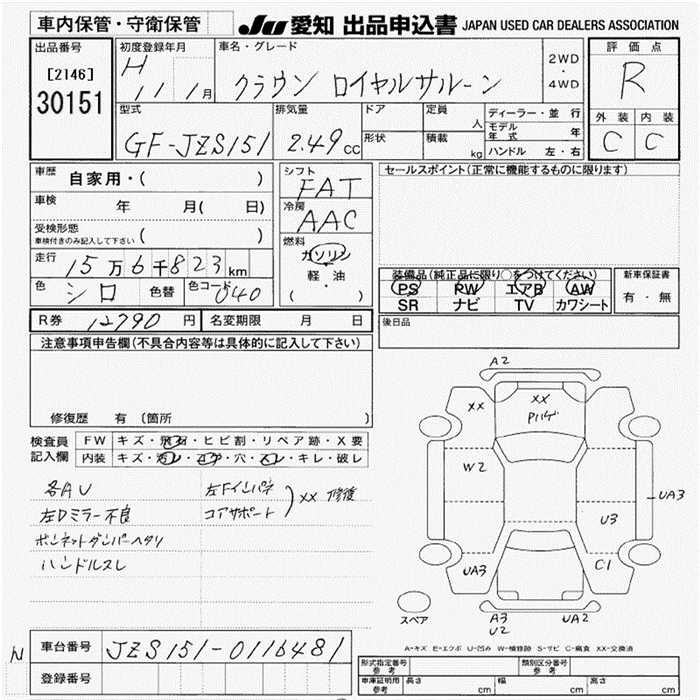 車内保管・守衛保管 JU 愛知 出品申込書 JAPAN USED CAR DEALERS ASSOCIATION
出品番号 [2146] 30151
初度登録年月 H 11 1月
車名・グレード クラウン ロイヤルサルーン
2WD・4WD
評価点 R
外装 C 内装 C
型式 GF-JZS151
排気量 2.49cc
ドア 形状
定員 人 積載 kg
ディーラー・並行
モデル年式 年
ハンドル 左・右
車歴 自家用・( )
車検 年 月( 日)
受検形態 車検付きのみ記入して下さい ( )
走行 15万6千823km
色 シロ 色替 色コード 040
シフト FAT
冷房 AAC
燃料 ガソリン 軽・油 ( ・ )
セールスポイント(正常に機能するものに限ります)
装備品(純正品に限り○をつけてください)
PS PW エアB AW
SR ナビ TV カワシート
新車保証書 有・無
後日品
R券 12790円 名変期限 月 日
注意事項申告欄(不具合内容等は具体的に記入して下さい)
修復歴 有 (箇所
検査員記入欄
FW キズ・飛石・ヒビ割・リペア跡・X要
内装 キズ・汚レ・コゲ・穴・スレ・キレ・破レ
各AU
左Dミラー不良
ボンネットダンパーヘタリ
ハンドルスレ
左Fインパネ
コアサポート
XX 修復
A2
XX
XX
Pハゲ
W2
UA3
U3
UA3
C1
スペア
A3
U2
UA2
A-キズ E-エクボ U-凹み W-補修跡 S-サビ C-腐食 XX-交換済
車台番号 JZS151-0116481
登録番号
形式指定番号 参考
類別区分番号 参考
車庫証明用 参考 長さ cm 幅 cm 高さ cm